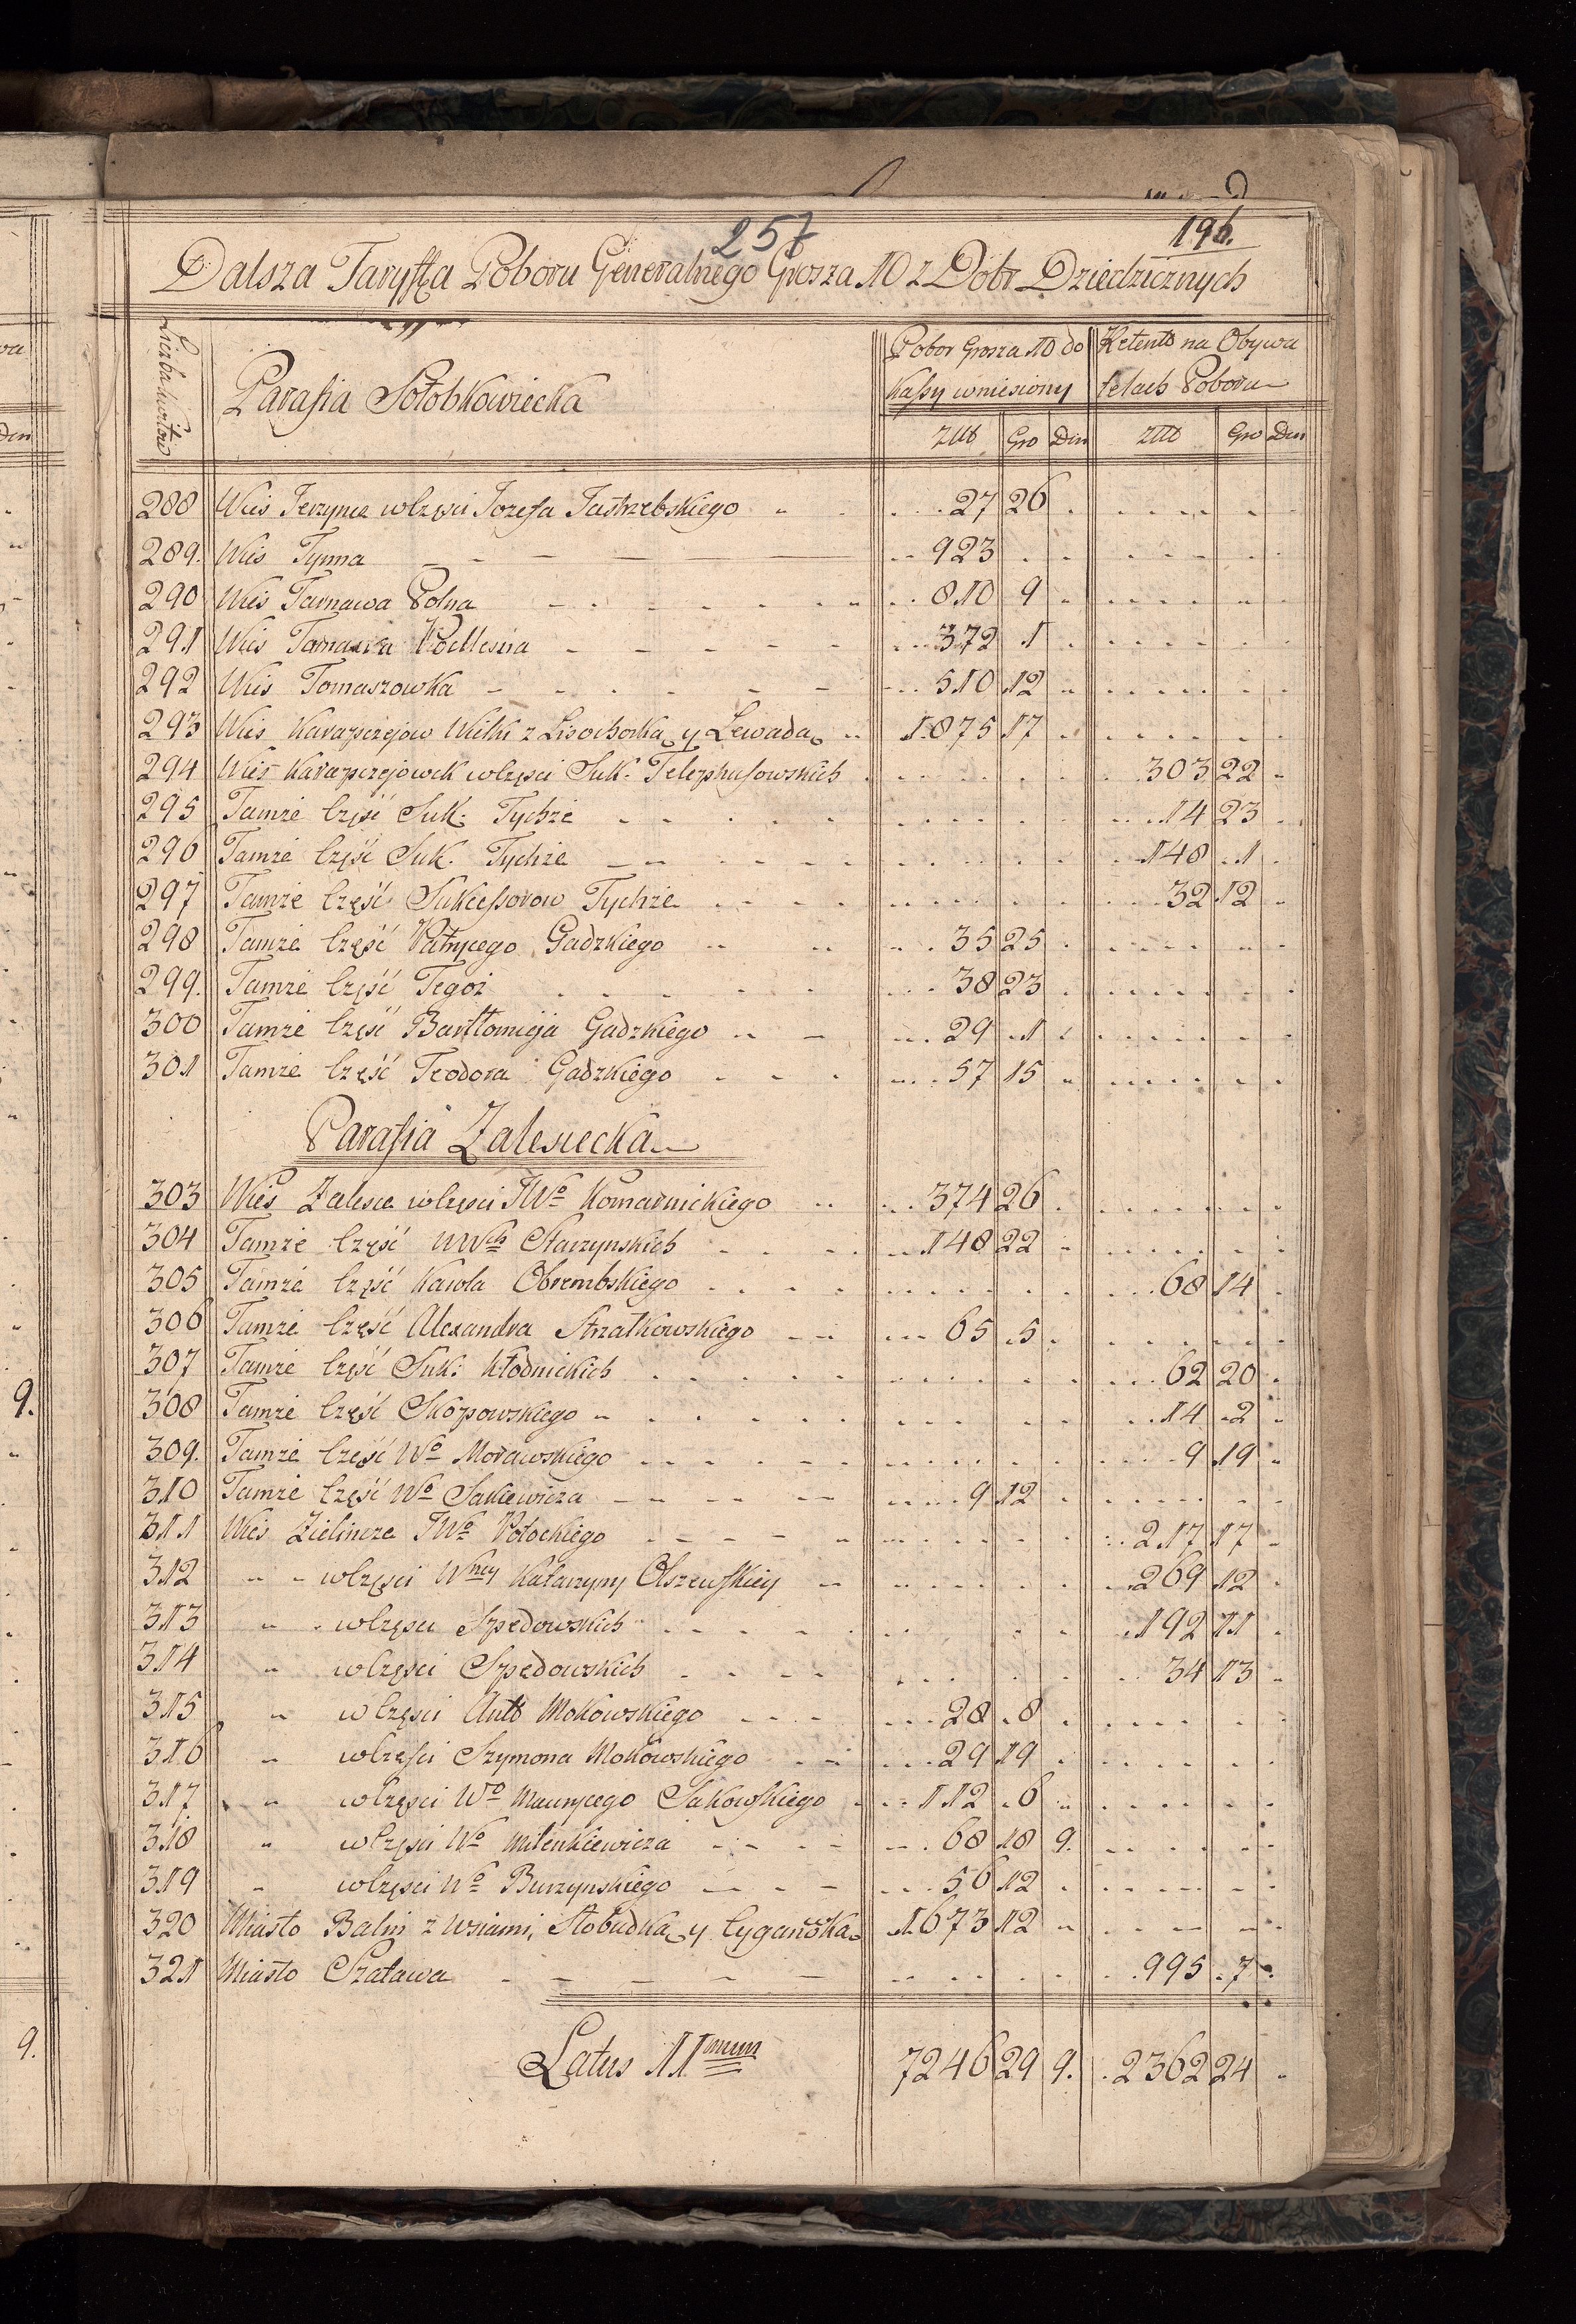 257
196.
Dalsza Taryffa Poboru Generalnego Grosza 10 z Dobr Dziedzicznych
Liczba kwitow
Parafia Sołobkowiecka
Pobor Grosza 10 do Kassy wniesiony
Retenta na Obywatelach Poboru
Złł Gro Den Złł Gro Den
288 Wieś Jerzyna w Części Jozefa Jastrzebskiego 27 26
289. Wieś Tynna 923
290 Wieś Tarnawa Polna 810 9
291 Wieś Tarnawa Podlesna 372 1
292 Wieś Tomaszowka 510 12
293 Wieś Karapczejow Wilki z Lisochorką y Lewadą 1875 17
294 Wieś Karapczejowek w Części Suk. 303 22
295 Tamże Część Suk. Tychże 14 23
296 Tamże Część Suk. Tychże 148 1
297 Tamże Część Sukcessorow Tychże 32 12
298 Tamże Część Patrycego Gadzkiego 35 25
299. Tamże Część Tegoż 38 23
300 Tamże Część Bartłomieja Gadzkiego 29 1
301 Tamże Część Teodora Gadzkiego 57 15
Parafia Zalesiecka
303 Wieś Zalesie w Części JWo Komarnickiego 374 26
304 Tamże Część WWch Starzynskich 148 22
305 Tamże Część Karola Obrembskiego 68 14
306 Tamże Część Alexandra Strzałkowskiego 65 5
307 Tamże Część Suk: Kłodnickich 62 20
308 Tamże Część Skopowskiego 14 2
309. Tamże Część Wo Morawskiego 9 19
310 Tamże Część Wo Sakiewicza 9 12
311 Wieś Zielincze JWo Potockiego 217 17
312 " " w Części Wney Katarzyny Olszewskiey 269 12
313 " w Części Szpedowskich 192 11
314 " w Części Szpedowskich 34 13
315 " w Części Anto Mokowskiego 28 8
316 " w Części Szymona Mokowskiego 29 19
317 " w Części Wo Maurycego Sakowskiego 112 6
318 " w Części Wo Milenkiewicza 68 18 9.
319 " w Części Wo Burzynskiego 56 12
320 Miasto Balin z Wsiami, Słobudką y Cyganowką 1673 12
321 Miasto Szatawa 995 7
Latus 11mum 7246 29 9. 2362 24